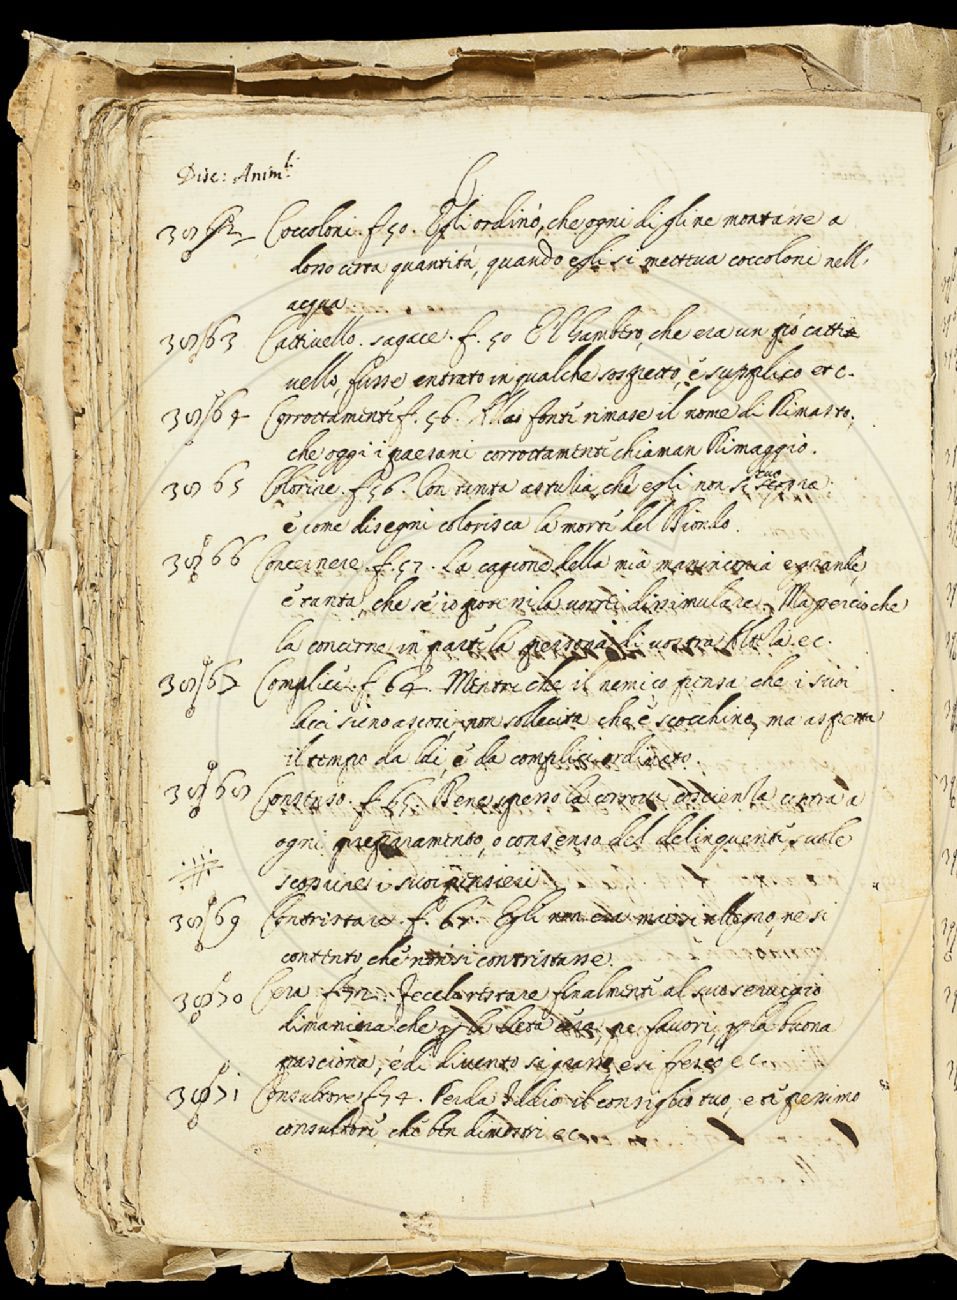 Disc: Anim.li
C
3862 Coccoloni. f. 50. Egli ordinò, che ogni dì gli ne montasse a
dosso certa quantità, quando egli si metteua coccoloni nell'
acqua
3863 Cattiuello. sagace. f. 50 El Gambero, che era un pò catti
uello, fusse entrato in qualche sospetto, è supplicò etc.
3864 Corrottamente f. 56. Alla fonte rimase il nome di Rimasto,
che oggi i paesani corrottamente chiaman Rimaggio.
3865 Colorire. f. 56. Con tanta astutia, che egli non si
è come disegni colorisca la morte del Biondo.
3866 Concernere. f. 57. La cagione della mia maninconia è grande,
è tanta, che se io potessi la uorrei dissimulare. Ma perciò che
la concerne in parte la persona di uostra Alt.za ec.
3867 Complice. f. 64. Mentre che il nemico pensa che i suoi
lacci sieno ascosi, non sollecita che è scocchino, ma aspetta
il tempo da lui, è da complici ordinato
3868 Consenso. f. 65. Bene spesso la corrotta coscienza contra a
ogni pensamento, o consenso del delinquente, suole
scoprire i suoi pensieri
3869 Contristare. f. 67. Egli non era mai si allegro, ne si
contento, che non si contristasse.
3870 Cera f. 72. Fecelo restare finalmente al suo seruigio
di maniera che p la lieta cera, pe fauori, p la buona
pasciona, è di diuentò si grasso e si fresco ec.
3871 Consultore f. 74. Perda Iddio il consiglio tuo, e te pessimo
consultore che ben dimostri ec